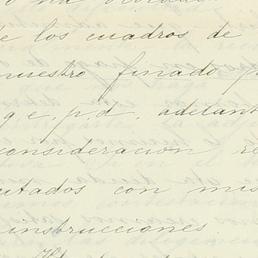 de los cuadros de
nuestro finado p
q.e.p.d. adelant
consideracion re
utados con mis
instrucciones